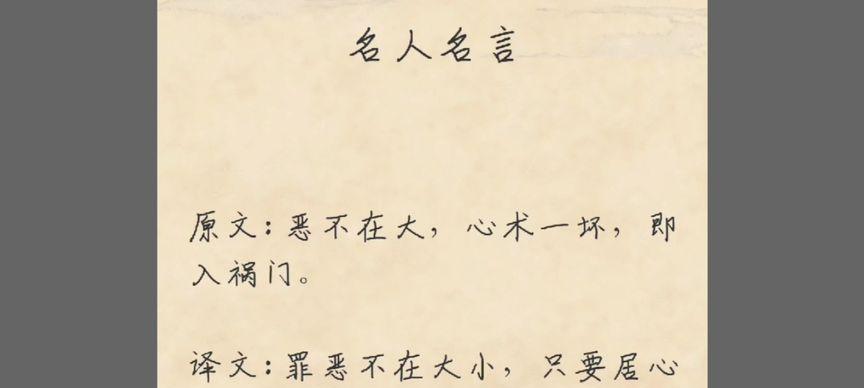 名人名言
原文:恶不在大，心术一坏，即
入祸门。
译文:罪恶不在大小，只要居心